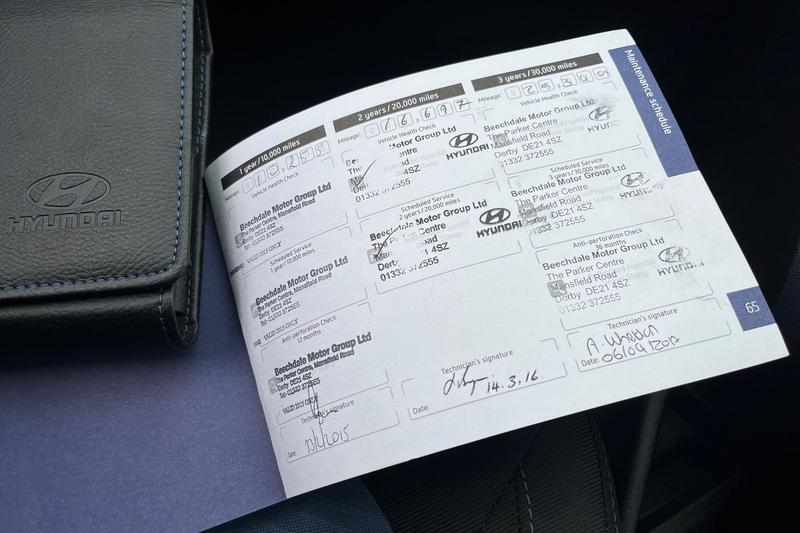 HYUNDAI
Maintenance schedule
1 year/10,000 miles
Vehicle Health Check
Beechdale Motor Group Ltd
The Parker Centre, Mansfield Road
Derby DE21 4SZ
Tel: 01332 372555
VALID 2015 ONLY
Scheduled Service
1 year/10,000 miles
Beechdale Motor Group Ltd
The Parker Centre, Mansfield Road
Derby DE21 4SZ
Tel: 01332 372555
VALID 2015 ONLY
Anti-perforation Check
12 months
Beechdale Motor Group Ltd
The Parker Centre, Mansfield Road
Derby DE21 4SZ
Tel: 01332 372555
VALID 2015 ONLY
Technician's signature
Date:
2 years/20,000 miles
Mileage: 016,697
Vehicle Health Check
Motor Group Ltd
Centre
4SZ
HYUNDAI
Scheduled Service
2 years/20,000 miles
Beechdale Motor Group Ltd
Road
Derby 4SZ
HYUNDAI
Technician's signature
14.3.16.
Date:
3 years/30,000 miles
Mileage: 025,349
Vehicle Health Check
Beechdale Motor Group Ltd
The Parker Centre
Mansfield Road
Derby DE21 4SZ
01332 372555
Scheduled Service
3 years/30,000 miles
Beechdale Motor Group Ltd
The Parker Centre
Mansfield Road
Derby DE21 4SZ
01332 372555
Anti-perforation Check
36 months
Beechdale Motor Group Ltd
The Parker Centre
Mansfield Road
Derby DE21 4SZ
01332 372555
HYUNDAI
Technician's signature
Date:
65